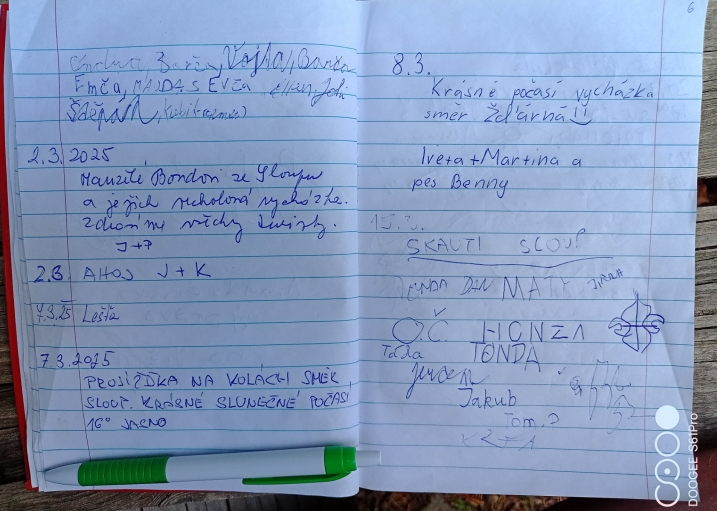 Barča, Vojta, Barča
Emča, MAJDA, S EVČA
Štěpán,
2.3. 2025
Manželé Bondovi ze Sloupu
a jejich nedělní vycházka.
Zdravíme všechny turisty.
J+P
2.3. AHOJ J + K
7.3.25 Lešťa
7.3.2025
PROJÍŽĎKA NA KOLÁCH SMĚR
SLOUP. KRÁSNÉ SLUNEČNÉ POČASÍ
16° JASNO
6
8.3.
Krásné počasí vycházka
směr Žďárná!!
Iveta + Martina a
pes Benny
15.3.
SKAUTI SLOUP
DAN MATY
O.Č. HONZA
TONDA
Jakub
Tom.
DOOGEE S61Pro